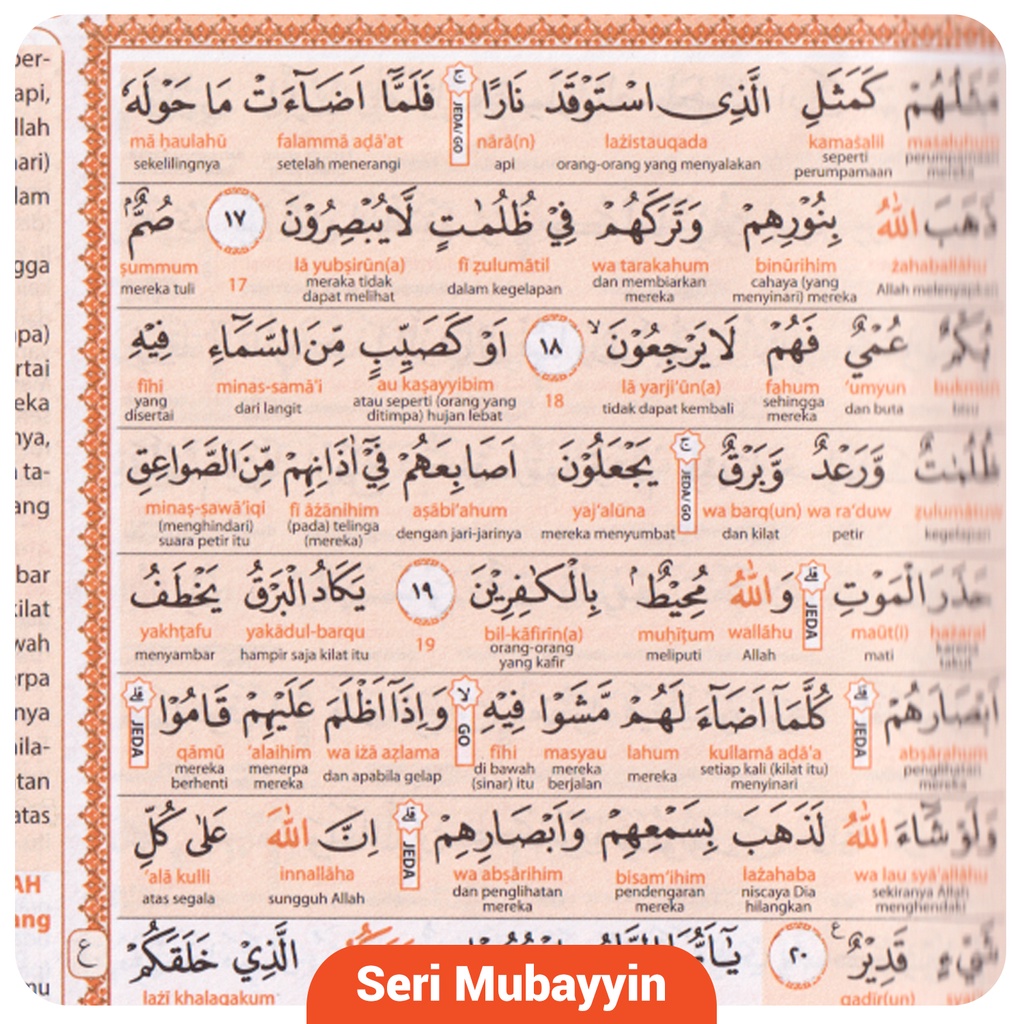 مَثَلُهُمْ كَمَثَلِ الَّذِى اسْتَوْقَدَ نَارًا ۚ فَلَمَّآ اَضَاۤءَتْ مَا حَوْلَهٗ
masaluhum kamaśalil lażistauqada nārā(n) JEDA/ GO falammā aḍā'at mā ḥaulahū
perumpamaan mereka seperti perumpamaan orang-orang yang menyalakan api setelah menerangi sekelilingnya
ذَهَبَ اللّٰهُ بِنُوْرِهِمْ وَتَرَكَهُمْ فِيْ ظُلُمٰتٍ لَّا يُبْصِرُوْنَ ١٧ صُمٌّۢ
żahaballāhu binūrihim wa tarakahum fī ẓulumātil lā yubṣirūn(a) 17 ṣummum
Allah melenyapkan cahaya (yang menyinari) mereka dan membiarkan mereka dalam kegelapan meraka tidak dapat melihat mereka tuli
بُكْمٌ عُمْيٌ فَهُمْ لَا يَرْجِعُوْنَۙ ١٨ اَوْ كَصَيِّبٍ مِّنَ السَّمَاۤءِ فِيْهِ
bukmun 'umyun fahum lā yarji'ūn(a) 18 au kaṣayyibim minas-samā'i fīhi
bisu dan buta sehingga mereka tidak dapat kembali atau seperti (orang yang ditimpa) hujan lebat dari langit yang disertai
ظُلُمٰتٌ وَّرَعْدٌ وَّبَرْقٌ ۚ يَجْعَلُوْنَ اَصَابِعَهُمْ فِيْٓ اٰذَانِهِمْ مِّنَ الصَّوَاعِقِ
ẓulumātuw wa ra'duw wa barq(un) JEDA/ GO yaj'alūna aṣābi'ahum fī āżānihim minaṣ-ṣawā'iqi
kegelapan petir dan kilat mereka menyumbat dengan jari-jarinya (pada) telinga (mereka) (menghindari) suara petir itu
حَذَرَ الْمَوْتِ ۗ JEDA وَاللّٰهُ مُحِيْطٌۢ بِالْكٰفِرِيْنَ ١٩ يَكَادُ الْبَرْقُ يَخْطَفُ
ḥażaral maūt(i) wallāhu muḥīṭum bil-kāfirīn(a) 19 yakādul-barqu yakhṭafu
karena takut mati Allah meliputi orang-orang yang kafir hampir saja kilat itu menyambar
اَبْصَارَهُمْ ۗ JEDA كُلَّمَآ اَضَاۤءَ لَهُمْ مَّشَوْا فِيْهِ ۙ GO وَاِذَآ اَظْلَمَ عَلَيْهِمْ قَامُوْا ۗ JEDA
abṣārahum kullamā aḍā'a lahum masyau fīhi wa iżā aẓlama 'alaihim qāmū
penglihatan mereka setiap kali (kilat itu) menyinari mereka mereka berjalan di bawah (sinar) itu dan apabila gelap menerpa mereka mereka berhenti
وَلَوْ شَاۤءَ اللّٰهُ لَذَهَبَ بِسَمْعِهِمْ وَاَبْصَارِهِمْ ۗ JEDA اِنَّ اللّٰهَ عَلٰى كُلِّ
wa lau syā'allāhu lażahaba bisam'ihim wa abṣārihim innallāha 'alā kulli
sekiranya Allah menghendaki niscaya Dia hilangkan pendengaran mereka dan penglihatan mereka sungguh Allah atas segala
شَيْءٍ قَدِيْرٌ ࣖ ٢٠ الَّذِيْ خَلَقَكُمْ
qadīr(un) lażī khalaqakum
ع
Seri Mubayyin